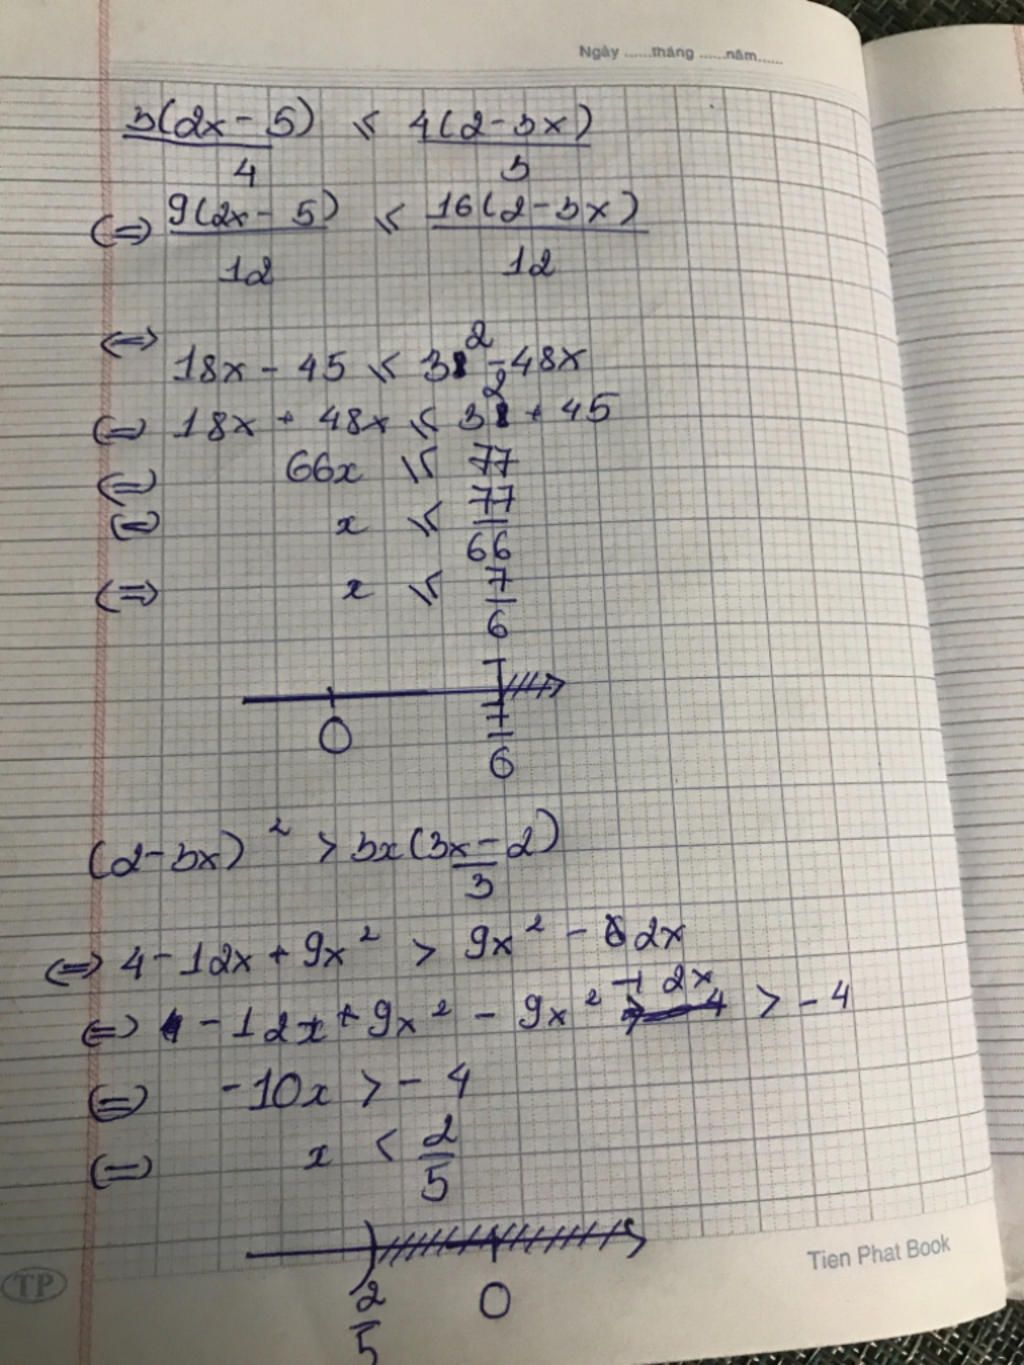 Ngày ......tháng ......năm......
3(2x - 5)/4 ≤ 4(2 - 3x)/3
⇔ 9(2x - 5)/12 ≤ 16(2 - 3x)/12
⇔ 18x - 45 ≤ 32 - 48x
⇔ 18x + 48x ≤ 32 + 45
⇔ 66x ≤ 77
⇔ x ≤ 77/66
⇔ x ≤ 7/6
0 7/6
(2 - 3x)² > 3x(3x - 2/3)
⇔ 4 - 12x + 9x² > 9x² - 2x
⇔ - 12x + 9x² - 9x² + 2x > - 4
⇔ -10x > - 4
⇔ x < 2/5
2/5 0
Tien Phat Book
TP